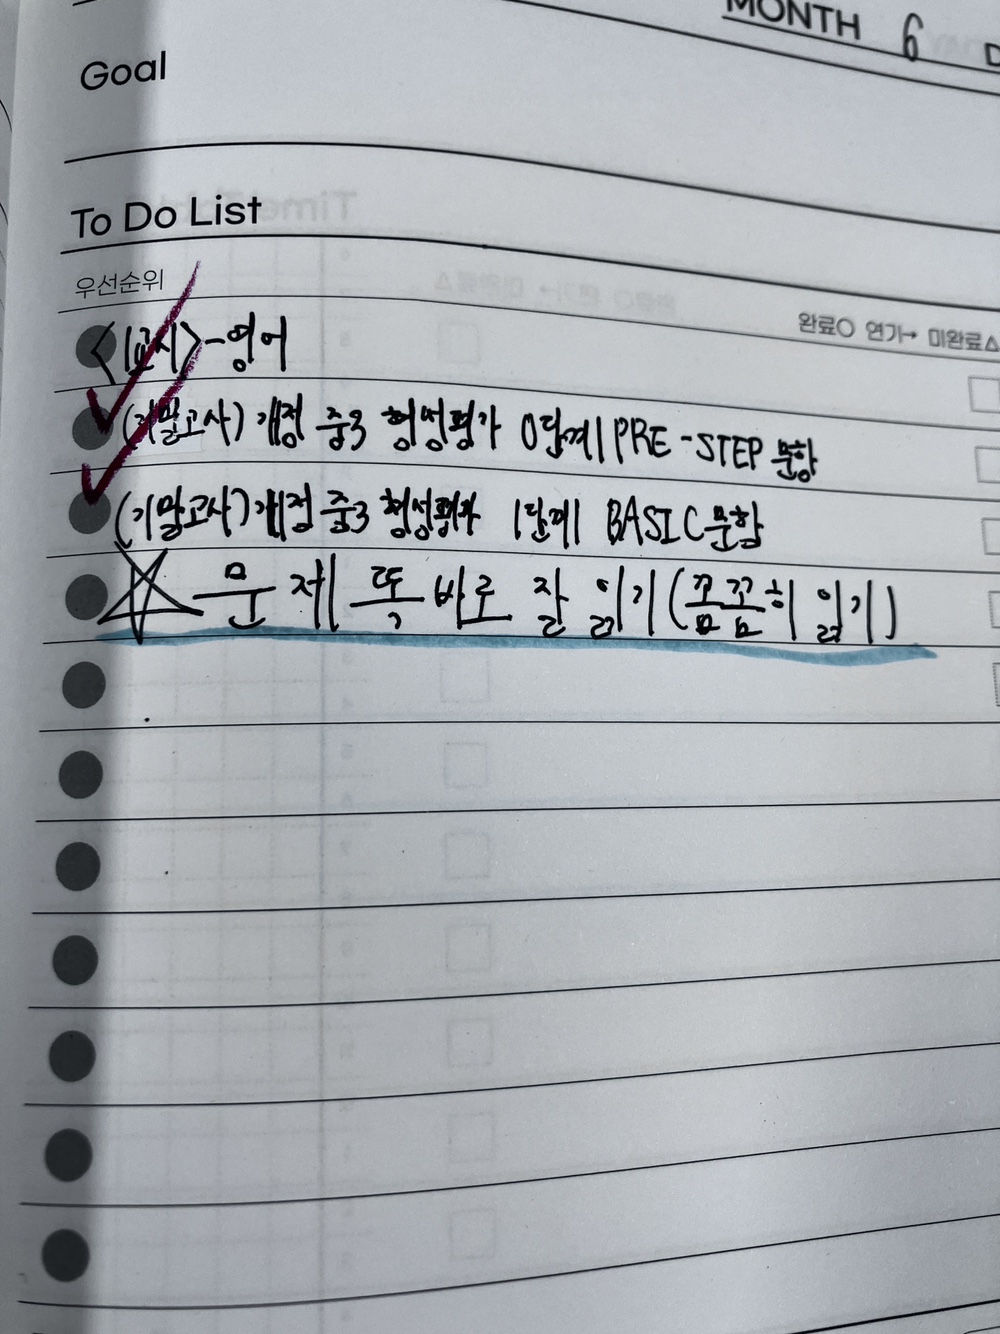 MONTH 6
Goal
To Do List
우선순위
완료○ 연기→ 미완료△
<1교시>-영어
(기말고사) 개정 중3 형성평가 0단계 PRE-STEP 문항
(기말고사) 개정 중3 형성평가 1단계 BASIC 문항
☆문제 똑바로 잘 읽기(꼼꼼히 읽기)